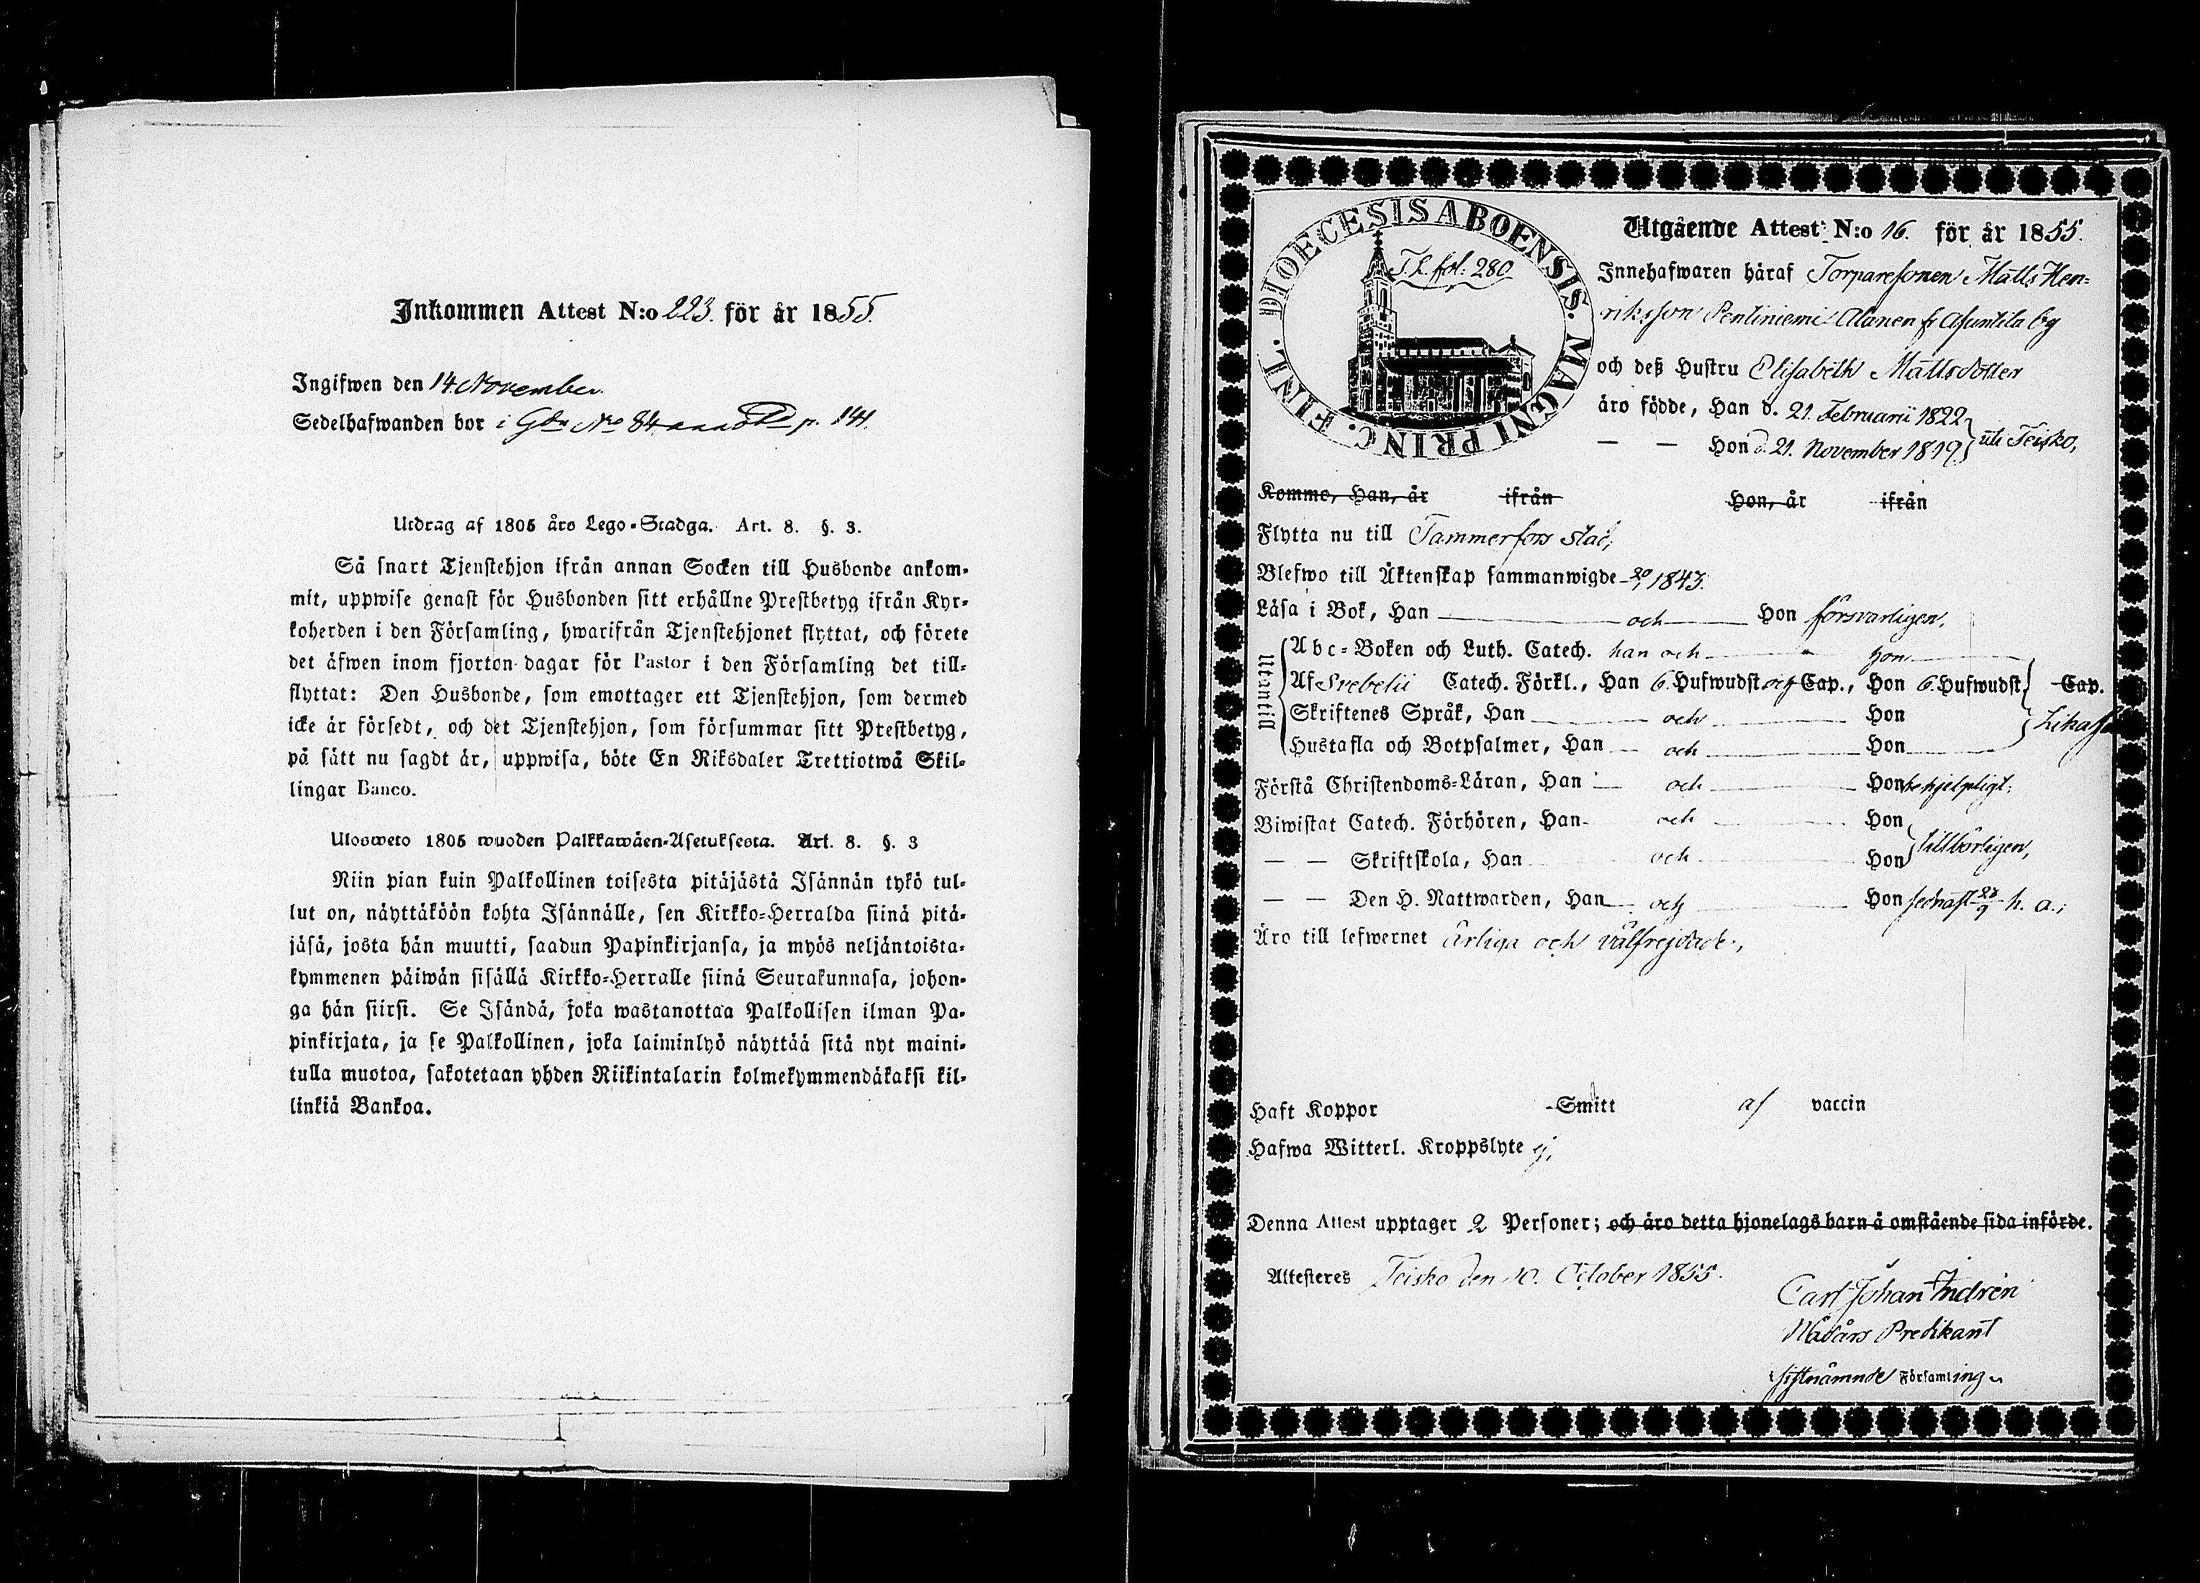 Inkommen Attest N:o 223. för år 1855.
Ingifwen den 14. November.
Sedelhafwanden bor i Gdn No 84 p. 141.
Utdrag af 1805 års Lego-Stadga. Art. 8. §. 3.
Så snart Tjenstehjon ifrån annan Socken till Husbonde ankom-
mit, uppwise genast för Husbonden sitt erhållne Prestbetyg ifrån Kyr-
koherden i den Församling, hwarifrån Tjenstehjonet flyttat, och förete
det äfwen inom fjorton dagar för Pastor i den Församling det till-
flyttat: Den Husbonde, som emottager ett Tjenstehjon, som dermed
icke är försedt, och det Tjenstehjon, som försummar sitt Prestbetyg,
på sätt nu sagdt är, uppwisa, böte En Riksdaler Trettiotwå Skil-
lingar Banco.
Ulosweto 1805 wuoden Palkkawäen-Asetuksesta. Art. 8. §. 3
Niin pian kuin Palkollinen toisesta pitäjästä Isännän tykö tul-
lut on, näyttäköön kohta Isännälle, sen Kirkko-Herralda siinä pitä-
jäsä, josta hän muutti, saadun Papinkirjansa, ja myös neljäntoista-
kymmenen päiwän sisällä Kirkko-Herralle siinä Seurakunnasa, johon-
ga hän siirsi. Se Isändä, joka wastanottaa Palkollisen ilman Pa-
pinkirjata, ja se Palkollinen, joka laiminlyö näyttää sitä nyt maini-
tulla muotoa, sakotetaan yhden Riikintalarin kolmekymmendäkaksi kil-
linkiä Bankoa.
DIOECESIS ABOENSIS. MAGNI PRINC. FINL.
T. L. fol: 280
Utgående Attest N:o 16. för år 1855.
Innehafwaren häraf Torparesonen Matts Hen-
riksson Pentiniemi Alanen fr Asuntila by
och deß Hustru Elisabeth Mattsdotter
äro födde, Han d. 21. Februarii 1822
— — Hon d. 21. November 1819 uti Teisko,
Komme, Han, år ifrån Hon, år ifrån
Flytta nu till Tammerfors stad,
Blefwo till Äktenskap sammanwigde 20/1 1843.
Läsa i Bok, Han och Hon försvarligen,
Utantill
Abc-Boken och Luth. Catech. han och hon
Af Svebelii Catech. Förkl., Han 6. Hufwudst och Cap., Hon 6. Hufwudst Cap.
Skriftenes Språk, Han och Hon
Hustafla och Botpsalmer, Han och Hon
Förstå Christendoms-Läran, Han och Hon behjelpligt;
Biwistat Catech. Förhören, Han och Hon
— — Skriftskola, Han och Hon tillbörligen,
— — Den H. Nattwarden, Han och Hon sednast 23/9 h. a.;
Äro till lefwernet ärliga och välfrejdade,
Haft Koppor Smitt af vaccin
Hafwa Witterl. Kroppslyte ej,
Denna Attest upptager 2 Personer; och äro detta hjonelags barn å omstående sida införde.
Attesteres Teisko den 10. October 1855.
Carl Johan Indrén
Nådårs Predikant
sistnämnde Församling